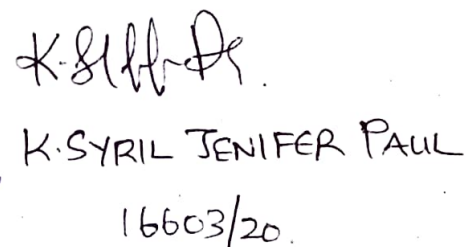 K. SYRIL JENIFER PAUL
16603/20.